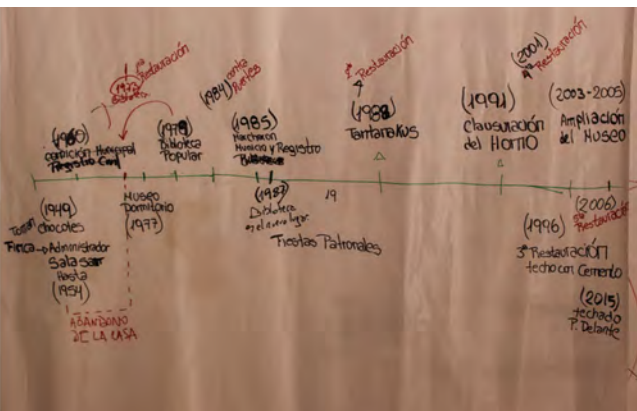 1ª Restauración
(1977)
(1960)
condición Municipal
Registro Civil
(1978)
Biblioteca
Popular
(1984) contra
fuertes
(1985)
Marcharon
Municip y Registro
2ª Restauración
(1988)
Tantarakus
(1991)
Clausuración
del HORNO
(2001)
4ª Restauración
(2003-2005)
Ampliación
del Museo
(1949)
Toman
chocotes
Finca → Administrador
Salasar
Hasta
(1954)
ABANDONO
DE LA CASA
Museo
Dormitorio
(1977)
(1987)
Biblioteca
en el nuevo lugar
19
Fiestas Patronales
(1996)
3ª Restauración
techo con Cemento
(2006)
5ª Restauración
(2015)
techado
P. Delante